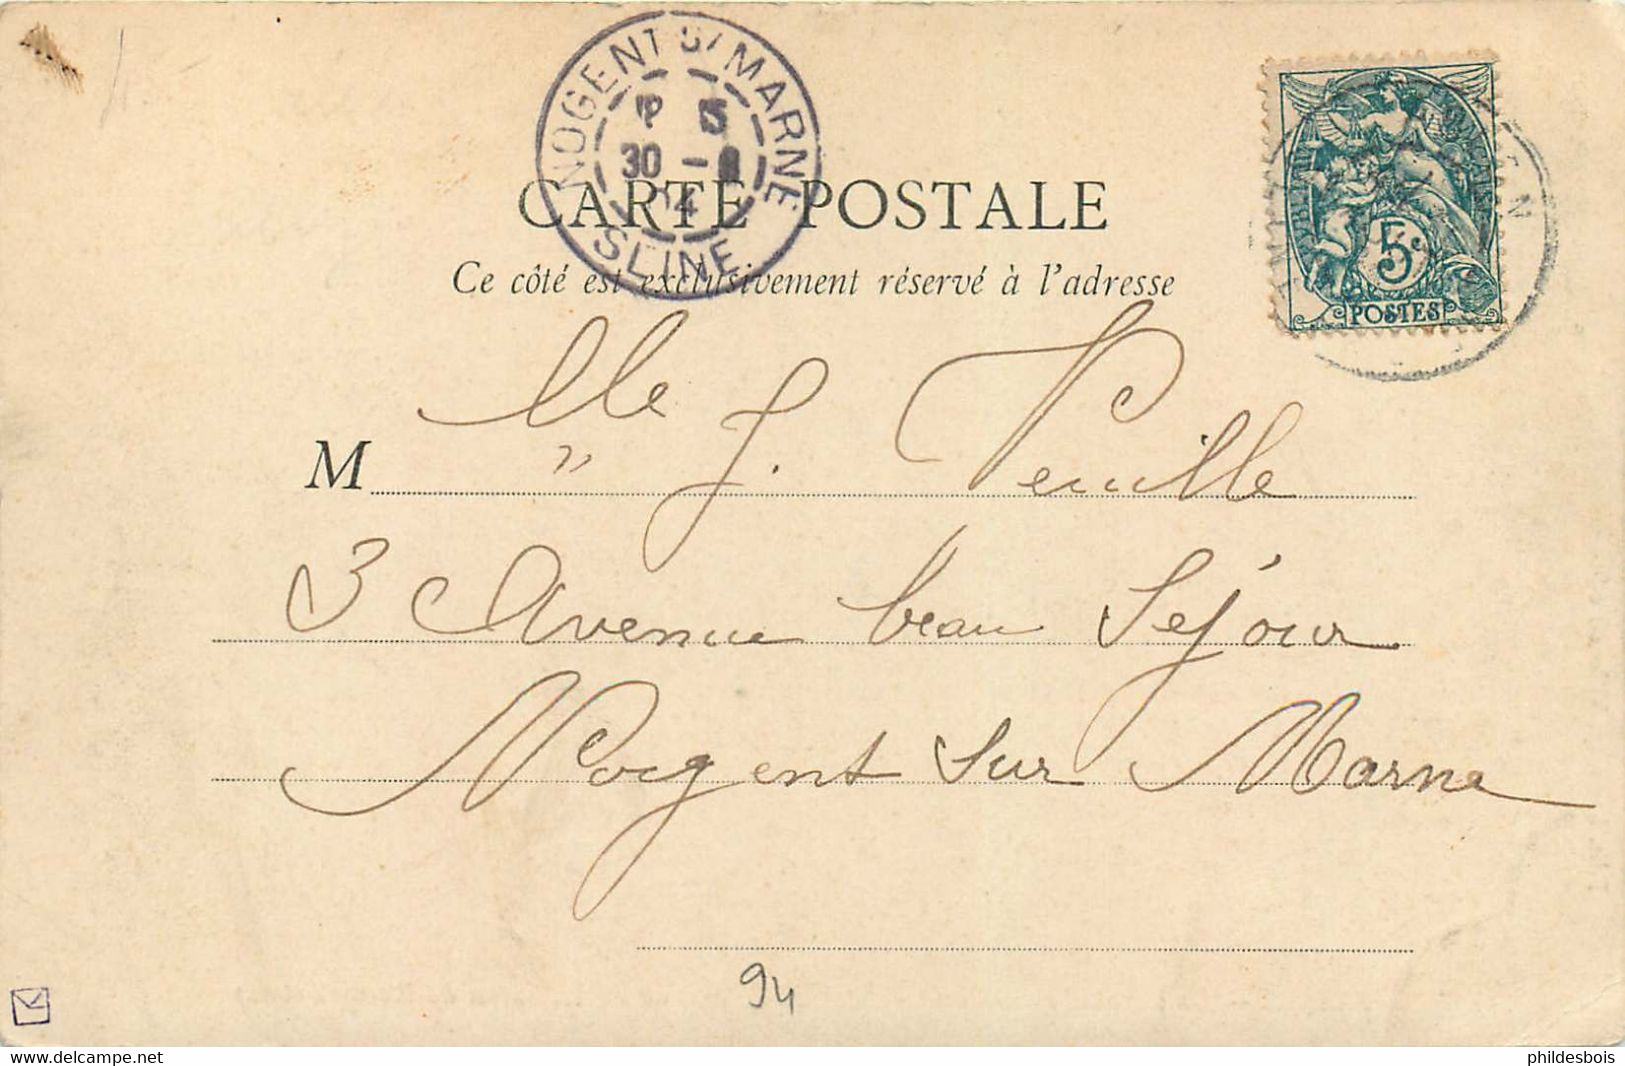 NOGENT S/ MARNE
5
30 -
04
SEINE
CARTE POSTALE
Ce côté est exclusivement réservé à l'adresse
5c
POSTES
M lle J. Peuille
3 Avenue beau Séjour
Nogent sur Marne
94
delcampe.net
phildesbois